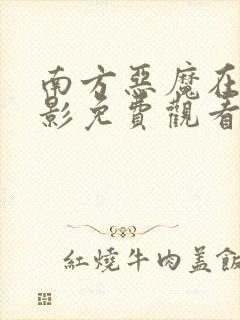 南方惡魔在
影免費觀看
紅燒牛肉蓋飯